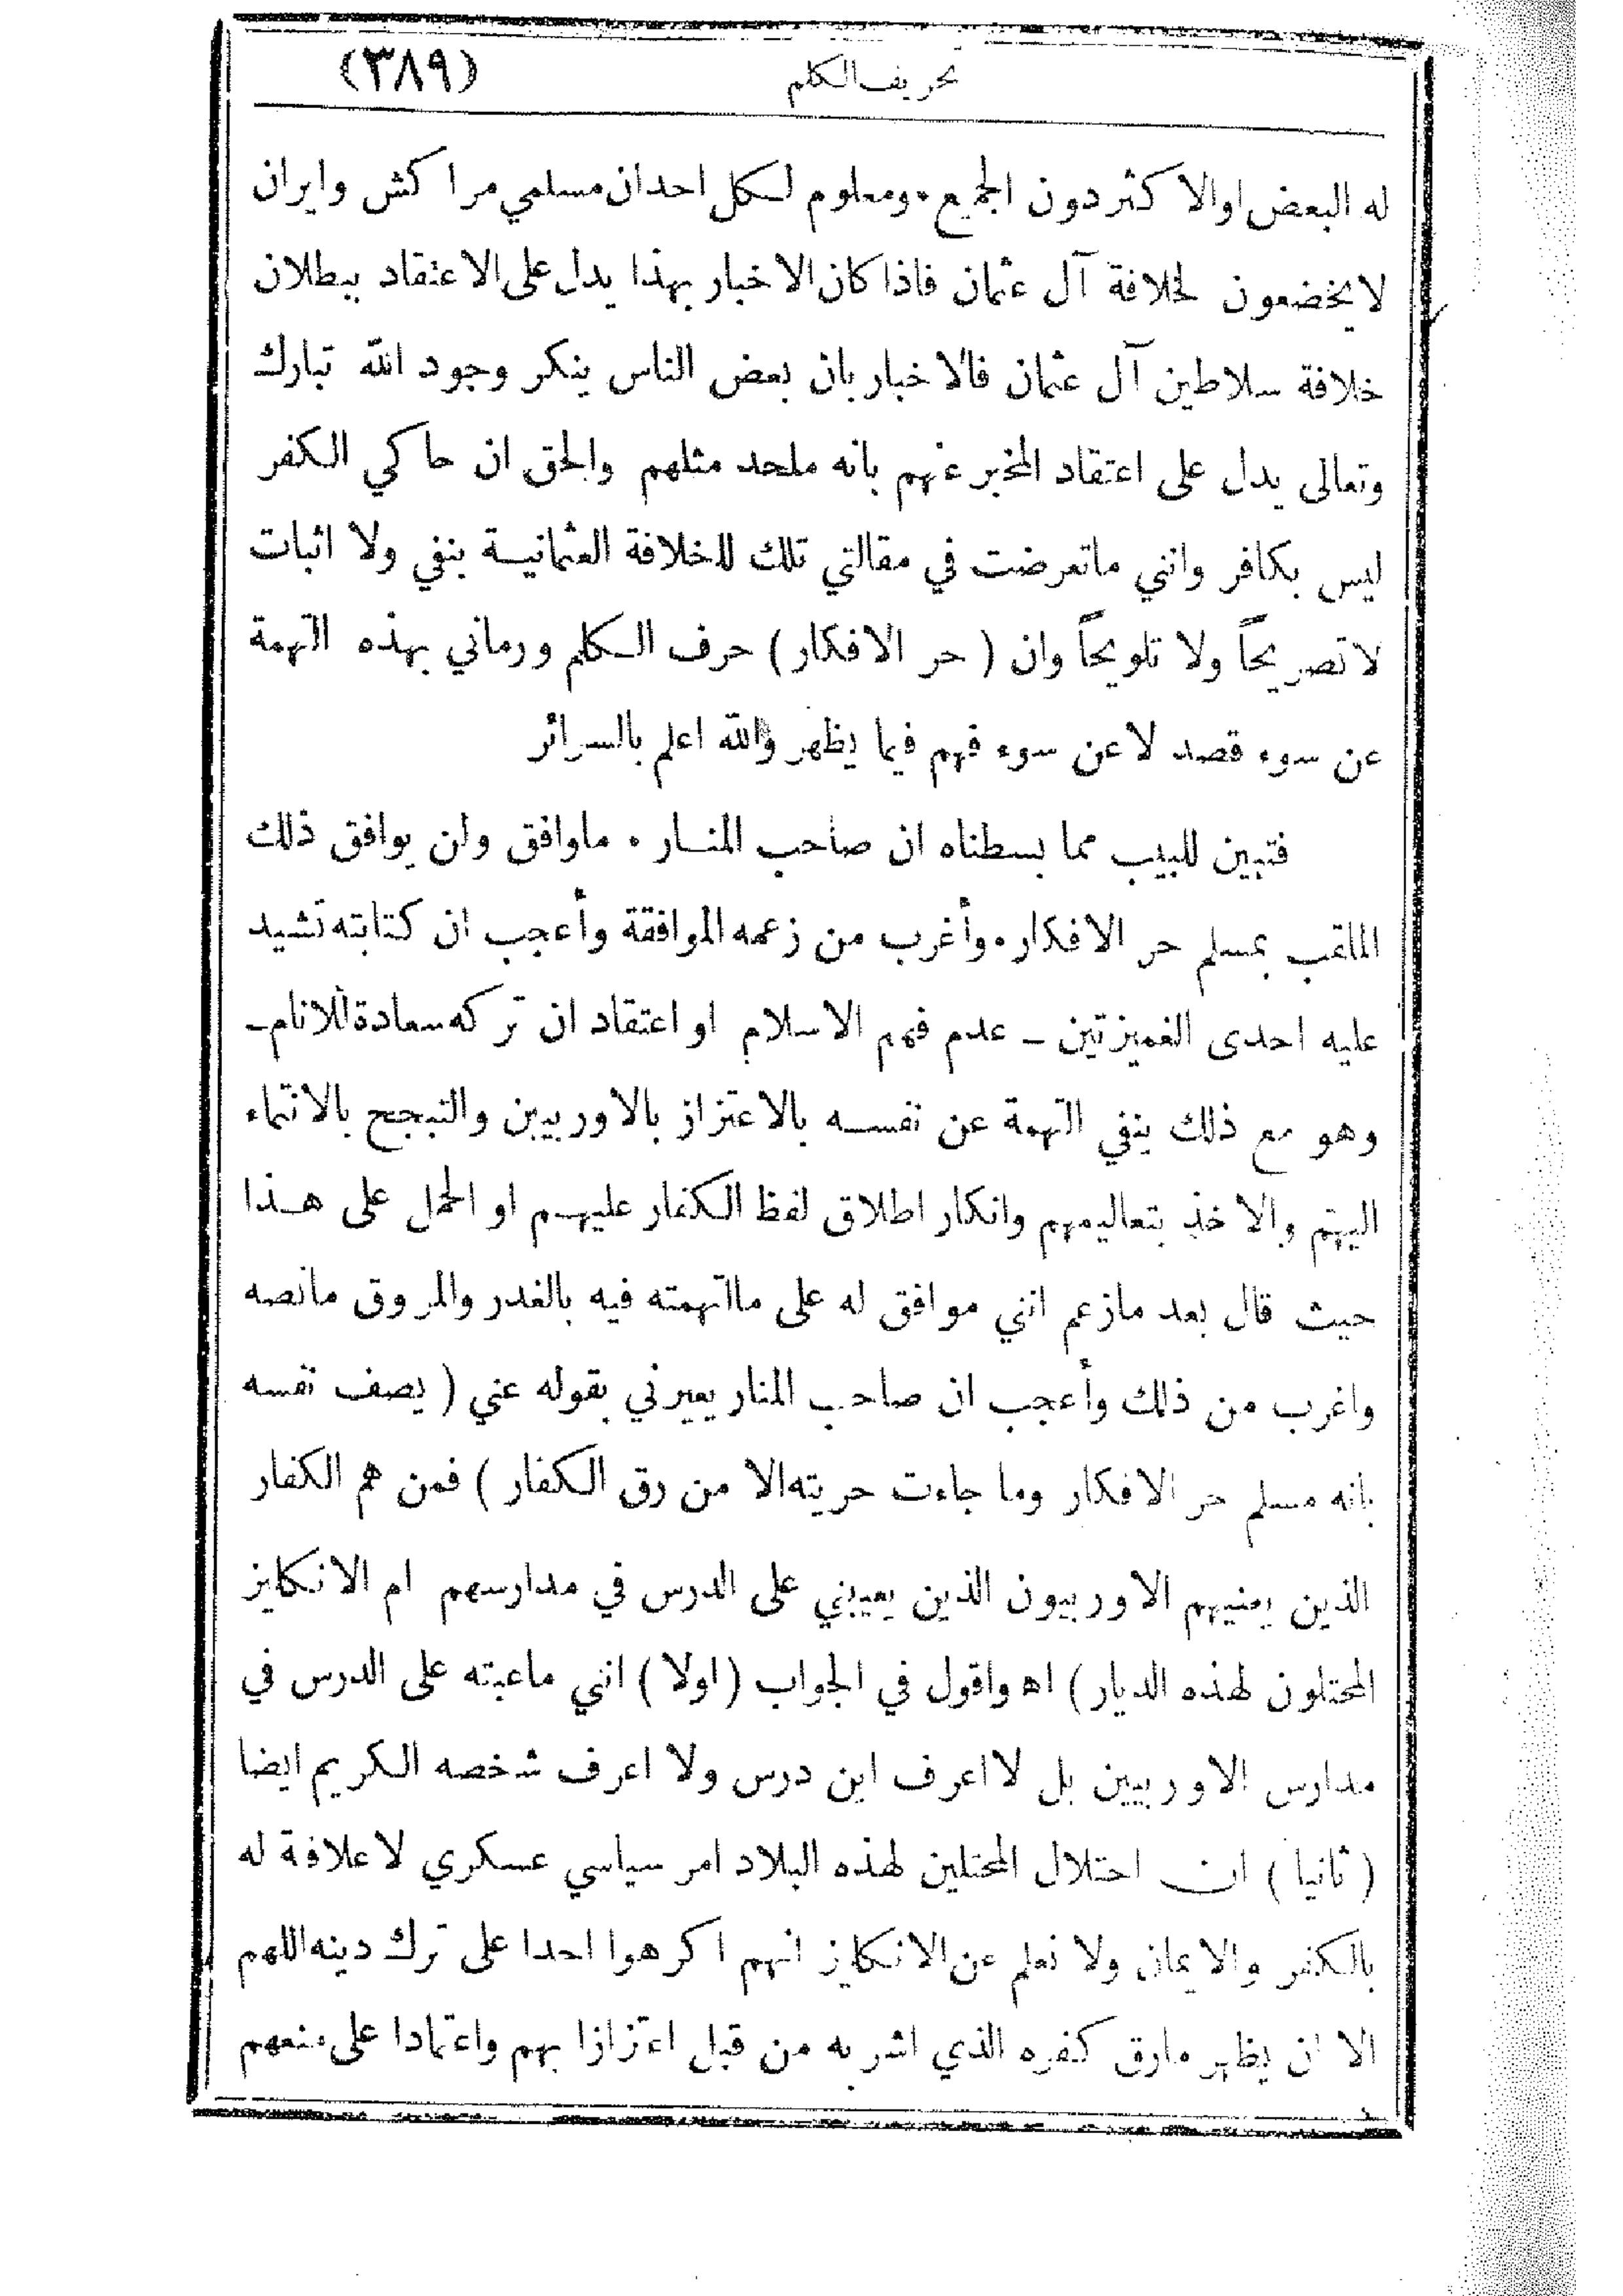 تحريف الكلم (٣٨٩)
له البعض او الاكثر دون الجميع . ومعلوم لكل احد ان مسلمي مراكش وايران
لا يخضعون لخلافة آل عثمان فاذا كان الاخبار بهذا يدل على الاعتقاد ببطلان
خلافة سلاطين آل عثمان فالاخبار بان بعض الناس ينكر وجود الله تبارك
وتعالى يدل على اعتقاد المخبر عنهم بانه ملحد مثلهم والحق ان حاكي الكفر
ليس بكافر وانني ماتعرضت في مقالتي تلك للخلافة العثمانية بنفي ولا اثبات
لا تصريحاً ولا تلويحاً وان ( حر الافكار ) حرف الكلم ورماني بهذه التهمة
عن سوء قصد لا عن سوء فهم فيما يظهر والله اعلم بالسرائر
فتبين للبيب مما بسطناه ان صاحب المنار . ماوافق ولن يوافق ذلك
الملقب بمسلم حر الافكار . وأغرب من زعمه الموافقة وأعجب ان كتابته تشيد
عليه احدى الغميزتين ـ عدم فهم الاسلام او اعتقاد ان تركه سعادة للانام ـ
وهو مع ذلك ينفي التهمة عن نفسه بالاعتزاز بالاوربيين والتبجح بالانتماء
اليهم والاخذ بتعاليمهم وانكار اطلاق لفظ الكفار عليهم او الحمل على هذا
حيث قال بعد مازعم انني موافق له على مااتهمته فيه بالغدر والمروق مانصه
واغرب من ذلك وأعجب ان صاحب المنار يعيرني بقوله عني ( يصف نفسه
بانه مسلم حر الافكار وما جاءت حريته الا من رق الكفار ) فمن هم الكفار
الذين يعنيهم الاوربيون الذين يعيبني على الدرس في مدارسهم ام الانكليز
المحتلون لهذه الديار ) اه واقول في الجواب (اولا ) انني ماعبته على الدرس في
مدارس الاوربيين بل لااعرف اين درس ولا اعرف شخصه الكريم ايضا
( ثانيا ) ان احتلال المحتلين لهذه البلاد امر سياسي عسكري لا علاقة له
بالكفر والايمان ولا نعلم عن الانكليز انهم اكرهوا احدا على ترك دينه اللهم
الا ان يظهر مارق كفره الذي اشربه من قبل اعتزازا بهم واعتمادا على منعهم